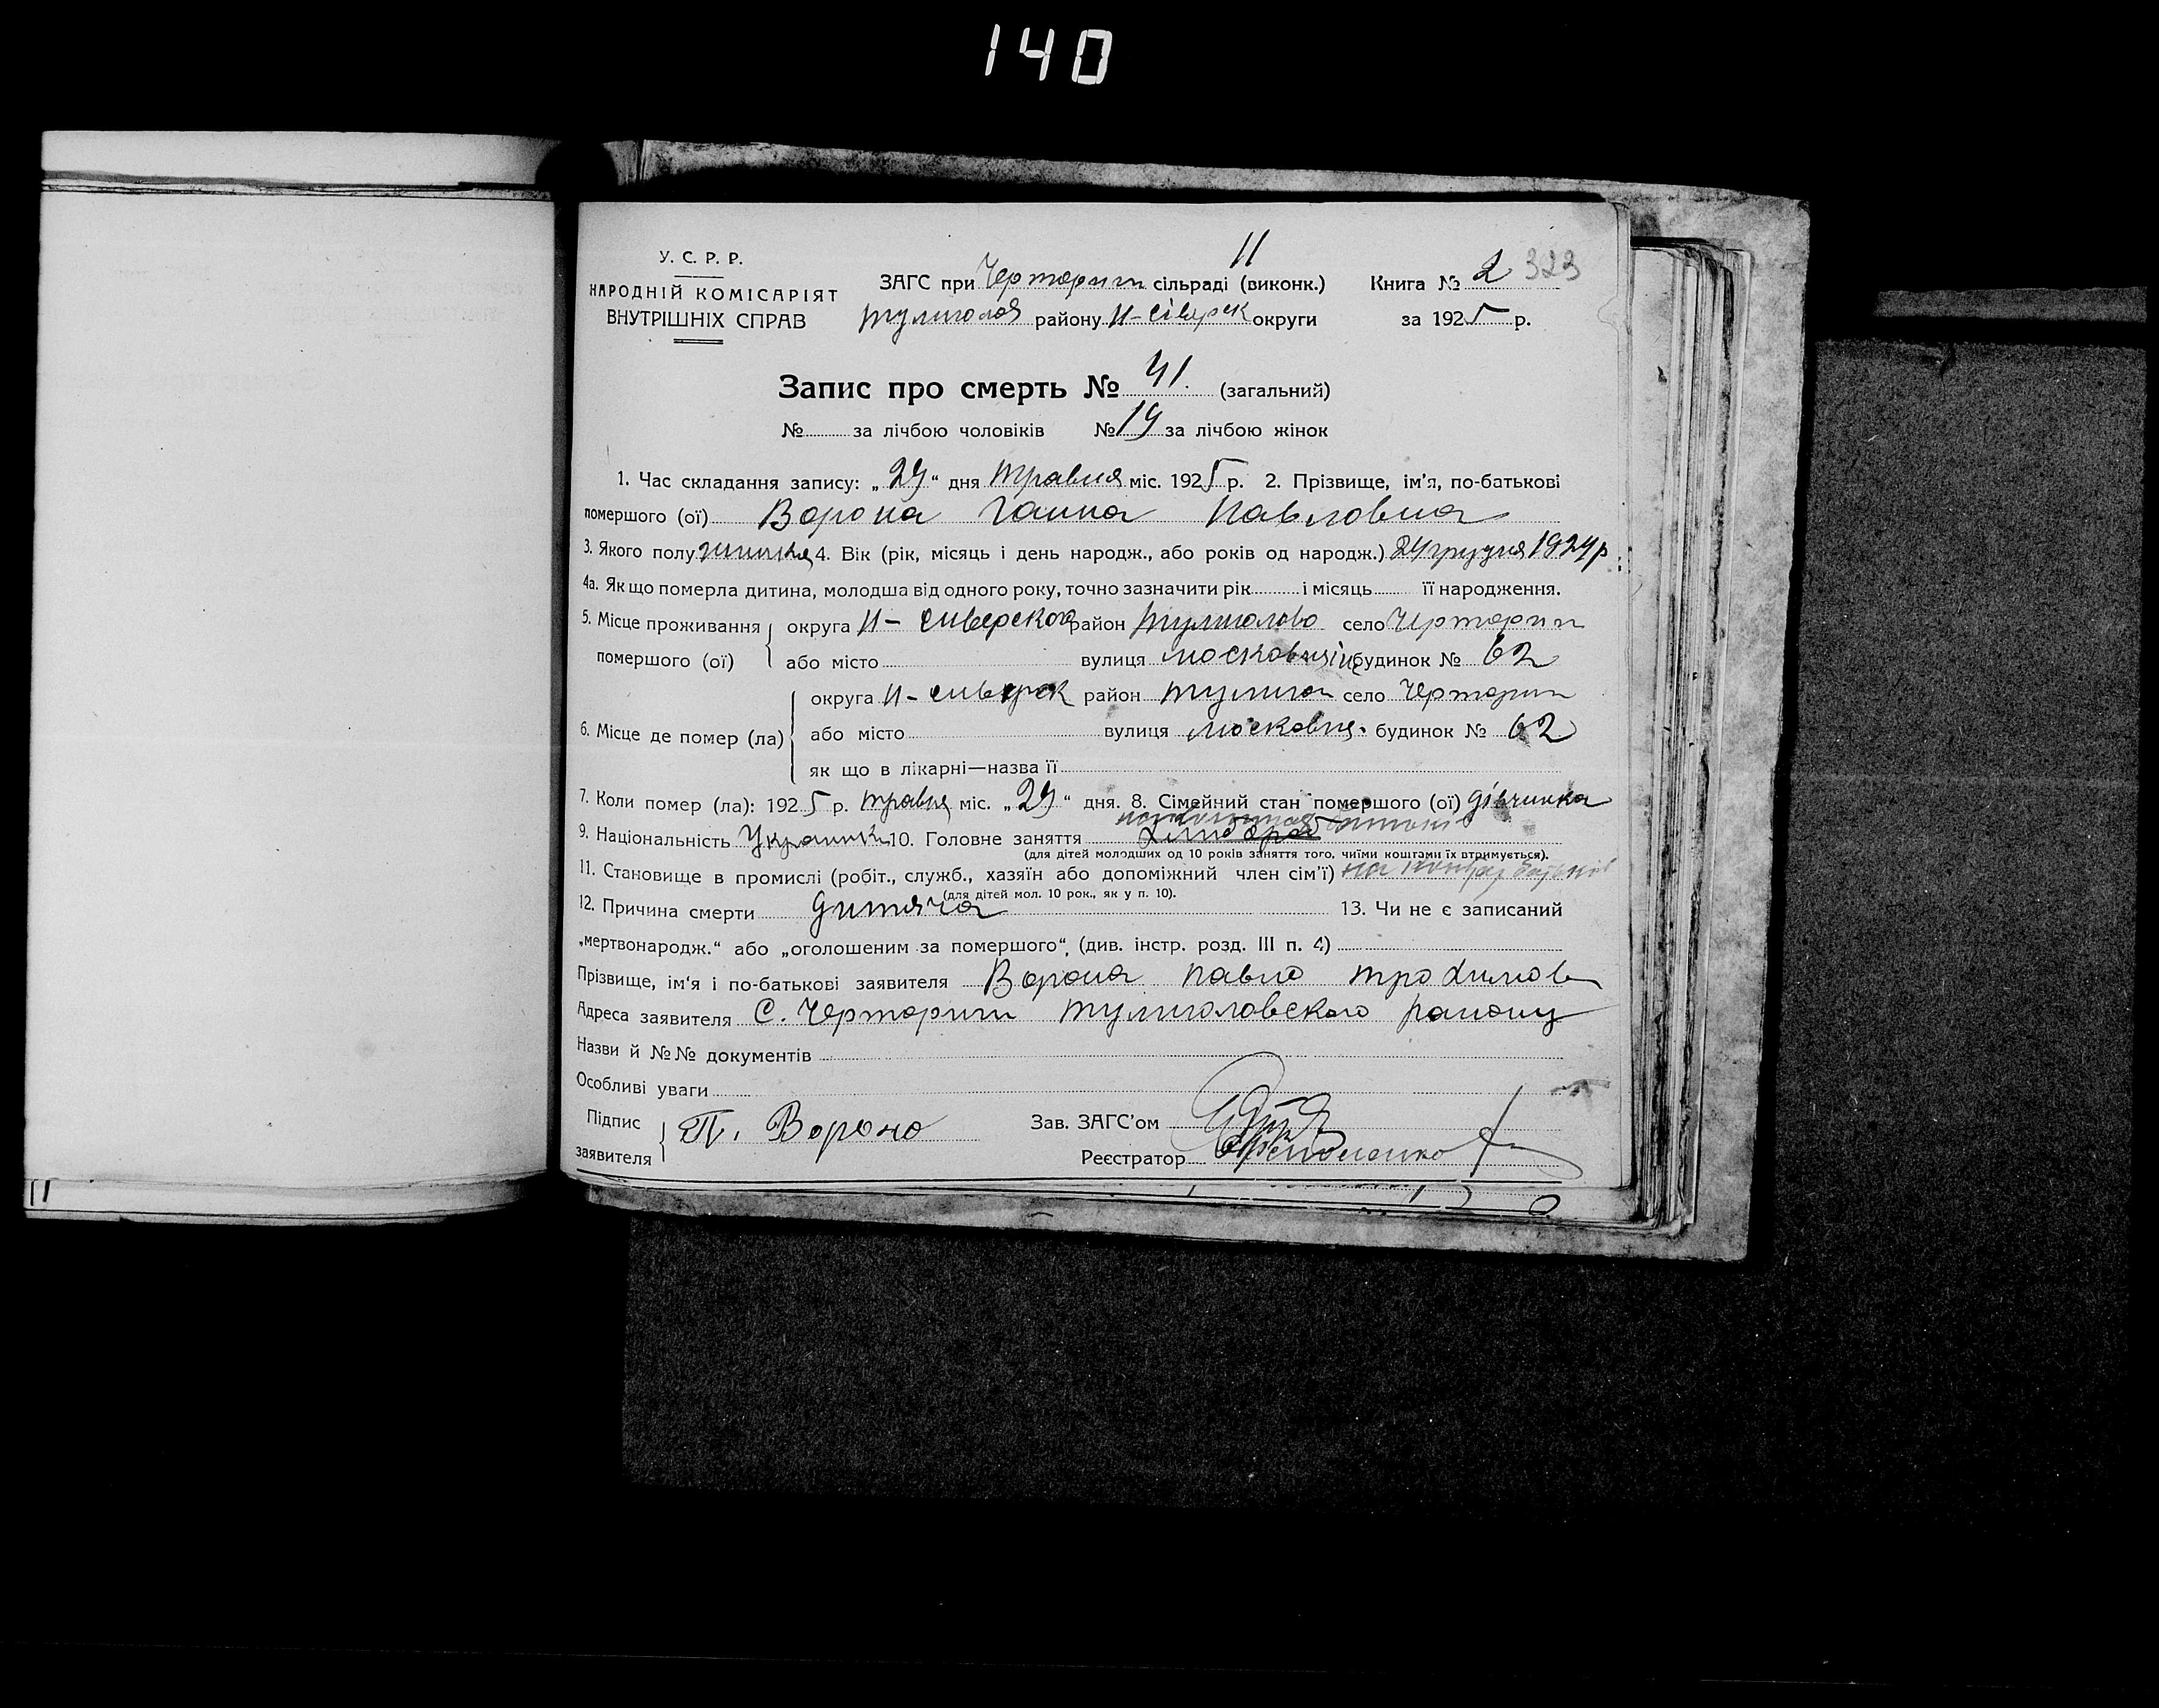 140
11
У. С. Р. Р.
НАРОДНІЙ КОМІСАРІЯТ
ВНУТРІШНІХ СПРАВ
ЗАГС при Черторигн сільраді (виконк.)
Тулиголов району Н-Сіверск округи
Книга № 2 323
за 1925 р.
Запис про смерть № 41. (загальний)
№ за лічбою чоловіків № 19 за лічбою жінок
1. Час складання запису: „ 29 “ дня Травня міс. 1925 р. 2. Прізвище, ім’я, по-батькові
помершого (ої) Ворона Ганна Павловна
3. Якого полу 4. Вік (рік, місяць і день народж., або років од народж.) 24 грудня 1924 р
4а. Як що померла дитина, молодша від одного року, точно зазначити рік і місяць її народження.
5. Місце проживання помершого (ої) округа Н- Сиверского район Тулиголово село Черториги
або місто вулиця будинок № 62
6. Місце де помер (ла) округа Н- Сиверск район Тулиго село Черториги
або місто вулиця московця. будинок № 62
як що в лікарні—назва її
7. Коли помер (ла): 1925 р. травня міс. „ 29 “ дня. 8. Сімейний стан помершого (ої) дівчинка
9. Національність Украинк 10. Головне заняття Хлибороб
(для дітей молодших од 10 років заняття того, чиїми коштами їх втримується).
11. Становище в промислі (робіт., служб., хазяїн або допоміжний член сім’ї) на
(для дітей мол. 10 рок., як у п. 10).
12. Причина смерти дитяча 13. Чи не є записаний
„мертвонародж.“ або „оголошеним за помершого“, (див. інстр. розд. III п. 4)
Прізвище, ім’я і по-батькові заявителя Ворона Павло Трохимов
Адреса заявителя С. Черториги Тулиголовского району
Назви й №№ документів
Особливі уваги
Підпис заявителя П. Вороно
Зав. ЗАГС’ом
Реєстратор
11